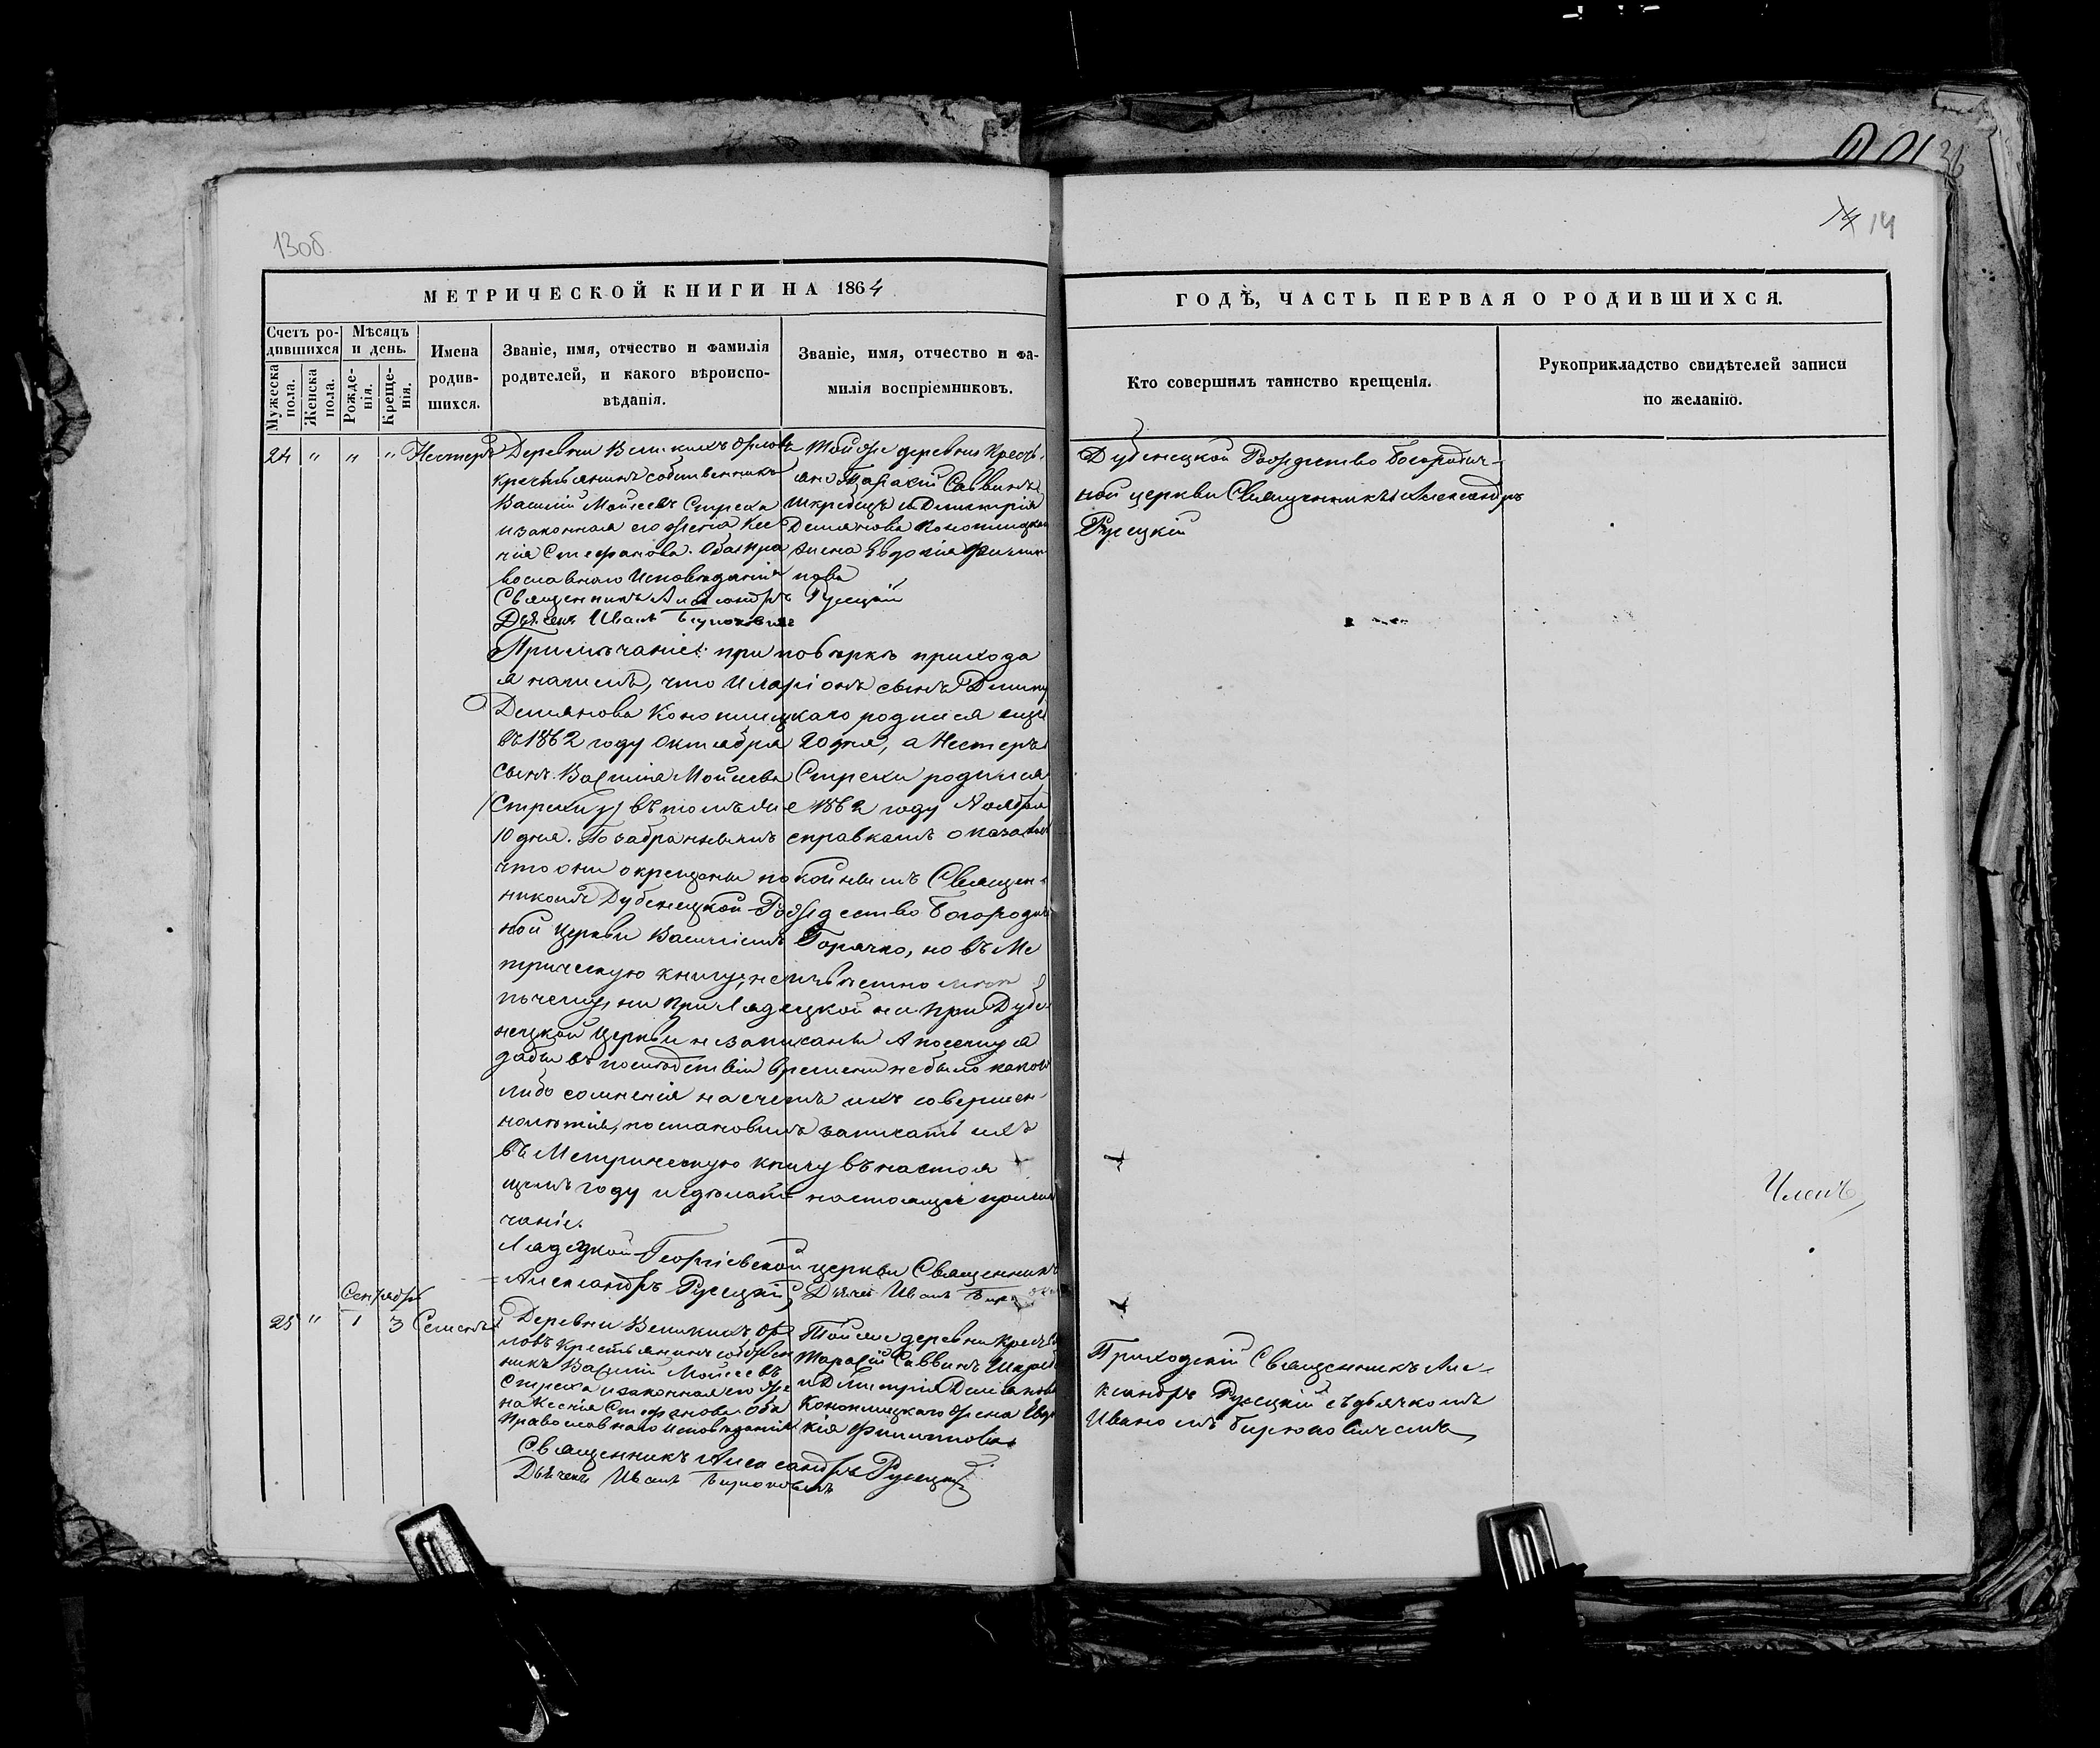 13об
14
МЕТРИЧЕСКОЙ КНИГИ НА 1864
ГОДѢ, ЧАСТЬ ПЕРВАЯ О РОДИВШИХСЯ.
Счетъ родившихся
Мужеска пола.
Женска пола.
Мѣсяцъ и день.
Рожденія.
Крещенія.
Имена родившихся.
Званіе, имя, отчество и фамилія
родителей, и какого вѣроиспо-
вѣданія.
Званіе, имя, отчество и фа-
милія воспріемниковъ.
Кто совершилъ таинство крещенія.
Рукоприкладство свидѣтелей записи
по желанію.
24 " " " Нестеръ
Деревни Великихъ Орловъ
крестьянинъ собственникъ
Василій Мойсеевъ Стреха
и законная его жена Ксе
нія Стефанова. Оба пра
вославнаго Исповѣданія
Той же деревни Кресть
яне Тарасій Саввинъ
Шкребецъ и Димитрія
Демянова Конопицка
жена Евдокія Филип
пова
Священникъ Александръ Русецкій
Дьячекъ Иванъ Бирюковичъ
Дубенецкой Рождество Богородич-
ной церкви Священникъ Александръ
Русецкій
Примѣчаніе: при повѣркѣ прихода
я нашелъ, что Иларіонъ сынъ Димит
Демянова Конопицкаго родился еще
въ 1862 году Октября 20 дня, а Нестеръ
сынъ Василія Мойсеева Стрехи родился
въ томъ же 1862 году Ноября
10 дня. По забраннымъ справкамъ оказалось
что они окрещены покойнымъ Священ-
никомъ Дубенецкой Рождество Богородич
ной Церкви Василіемъ Горячко, но въ Ме
трическую книгу, неизвѣстно мнѣ
почему, ни при Лядецкой ни при Дубе
нецкой Церкви незаписаны А посему я
дабы въ послѣдствіи времени небыло каког
либо сомненія насчетъ ихъ совершен-
нолѣтія, постановилъ записать ихъ
въ Метрическую книгу въ настоя
щемъ году и сдѣлать настоящее примѣ
чаніе.
Лядецкой Георгіевской церкви Священникъ
Александръ Русецкій, Дьячекъ Иванъ
Членъ
Сентябрь
25 " 1 3 Семенъ
Деревни Великихъ Ор
ловъ Крестьянинъ собствен
никъ Василій Мойсеевъ
Стреха и законная его же
на Ксенія Стефанова. Оба
Православнаго Исповѣданія
Той же деревни Кресть
Тарасій Саввинъ Шкреб
и Димитрія Демянова
Конопицкаго жена Евдо
кія Филиппова
Священникъ Александръ Русецкій
Дьячекъ Иванъ Бирюковичъ
Приходскій Священникъ Але-
ксандръ Русецкій съ дьячкомъ
Иваномъ Бирюковичемъ